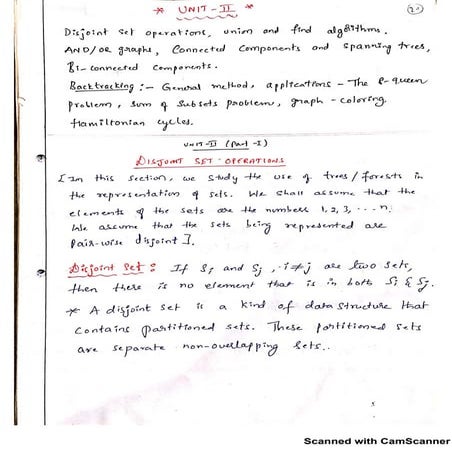 * UNIT-II *
Disjoint set operations, union and find algorithms.
AND/OR graphs, Connected Components and spanning trees,
Bi-connected Components.
Backtracking :- General method, applications - The 8-queen
Problem, Sum of Subsets problem, graph-coloring,
Hamiltonian cycles.
UNIT-II (Part-I)
DISJOINT SET OPERATIONS
[In this section, we study the use of trees/forests in
the representation of sets. We shall assume that the
elements of the sets are the numbers 1, 2, 3, ... n.
We assume that the sets being represented are
Pair-wise disjoint].
Disjoint Set : If Si and Sj, i≠j are two sets,
then there is no element that is in both Si & Sj.
* A disjoint set is a kind of data structure that
contains partitioned sets. These partitioned sets
are separate non-overlapping sets..
Scanned with CamScanner